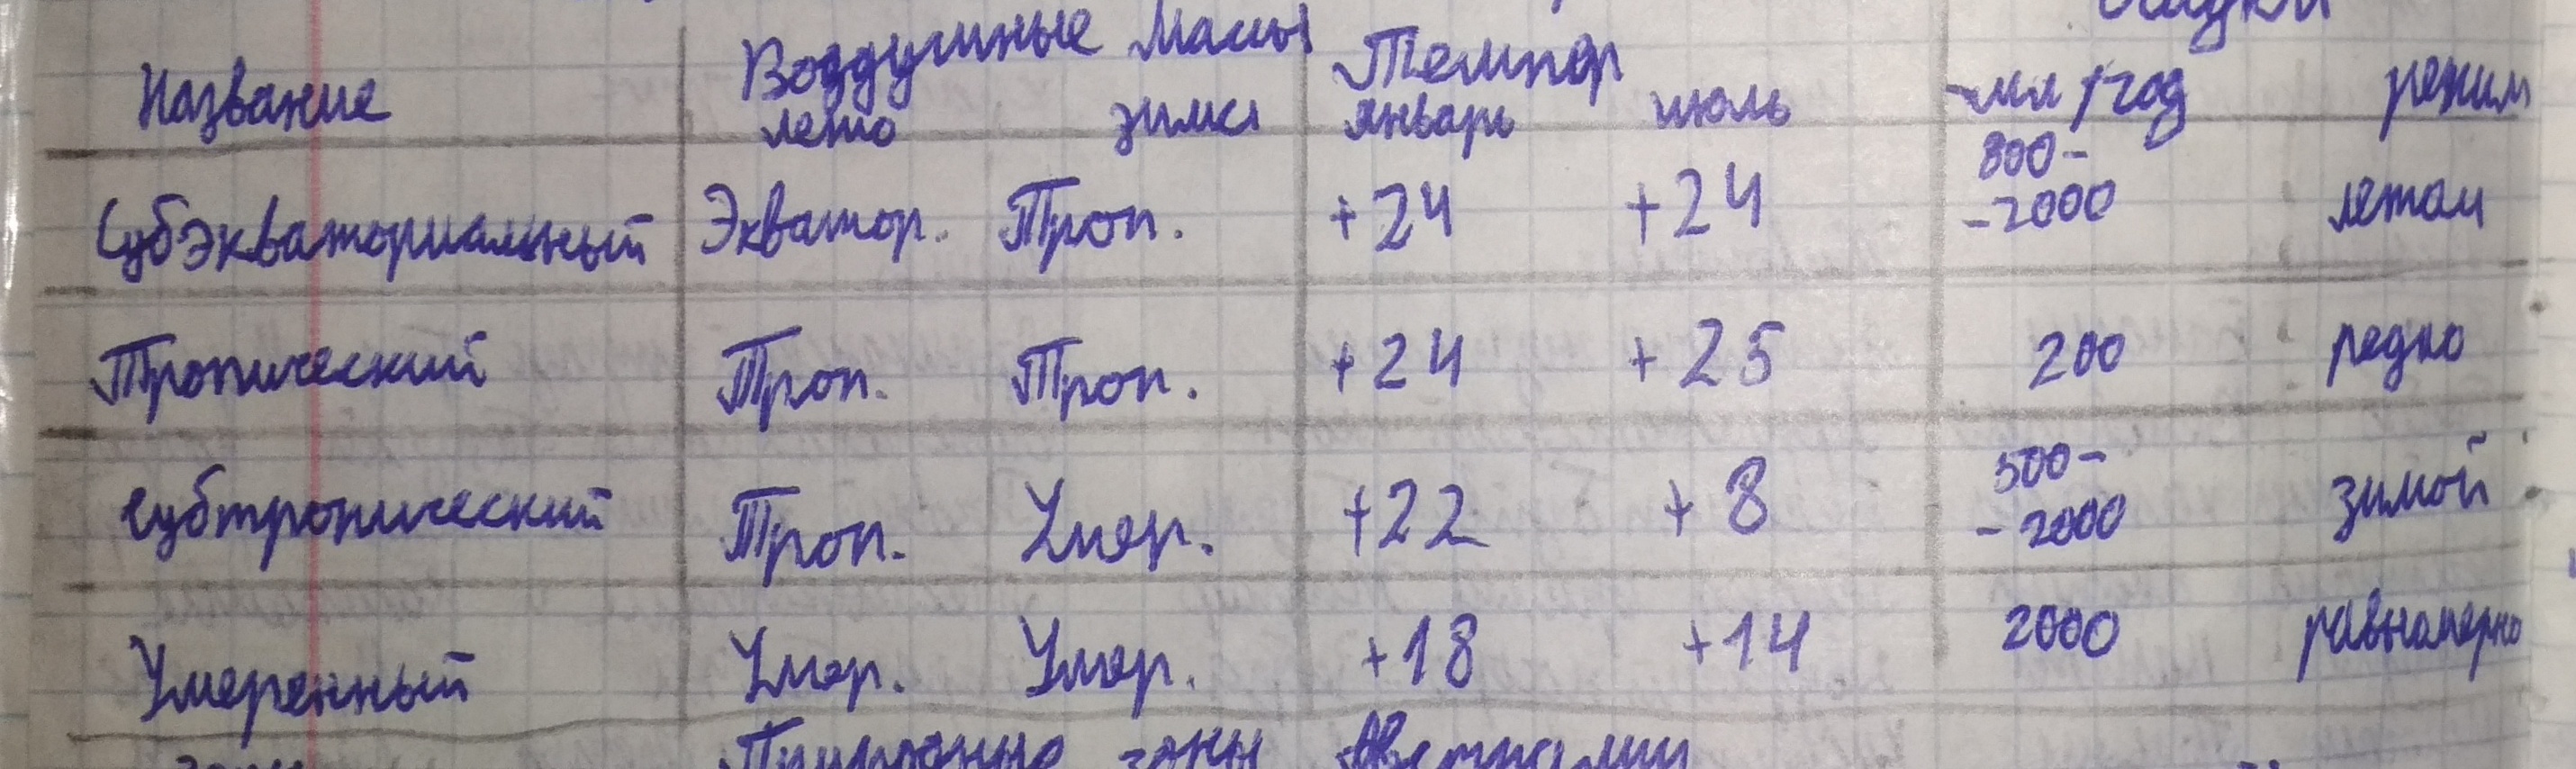 осадки
Воздушные массы Темпер
Название лето зима январь июль мм/год режим
Субэкваториальный Экватор. Троп. +24 +24 800-
-2000 летом
Тропический Троп. Троп. +24 +25 200 редко
Субтропический Троп. Умер. +22 +8 500-
-2000 зимой
Умеренный Умер. Умер. +18 +14 2000 равномерно
Природные зоны Австралии